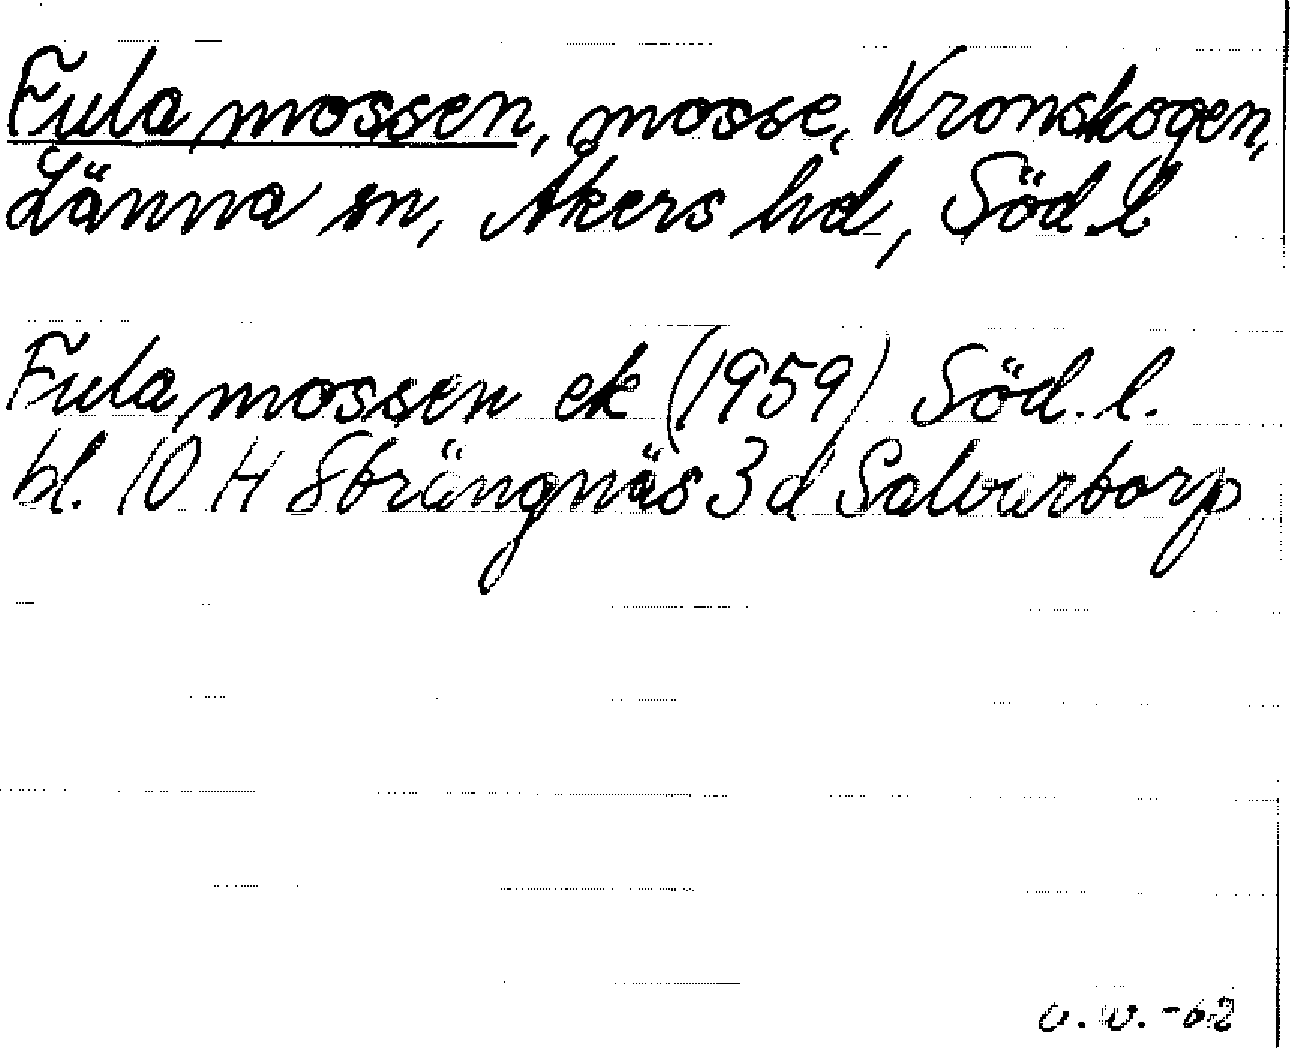 Fula mossen, mosse, Kronskogen,
Länna sn, Åkers hd, Söd. l
Fula mossen ek (1959) Söd. l.
bl. 10 H Strängnäs 3 d Salvartorp
v. w. -62